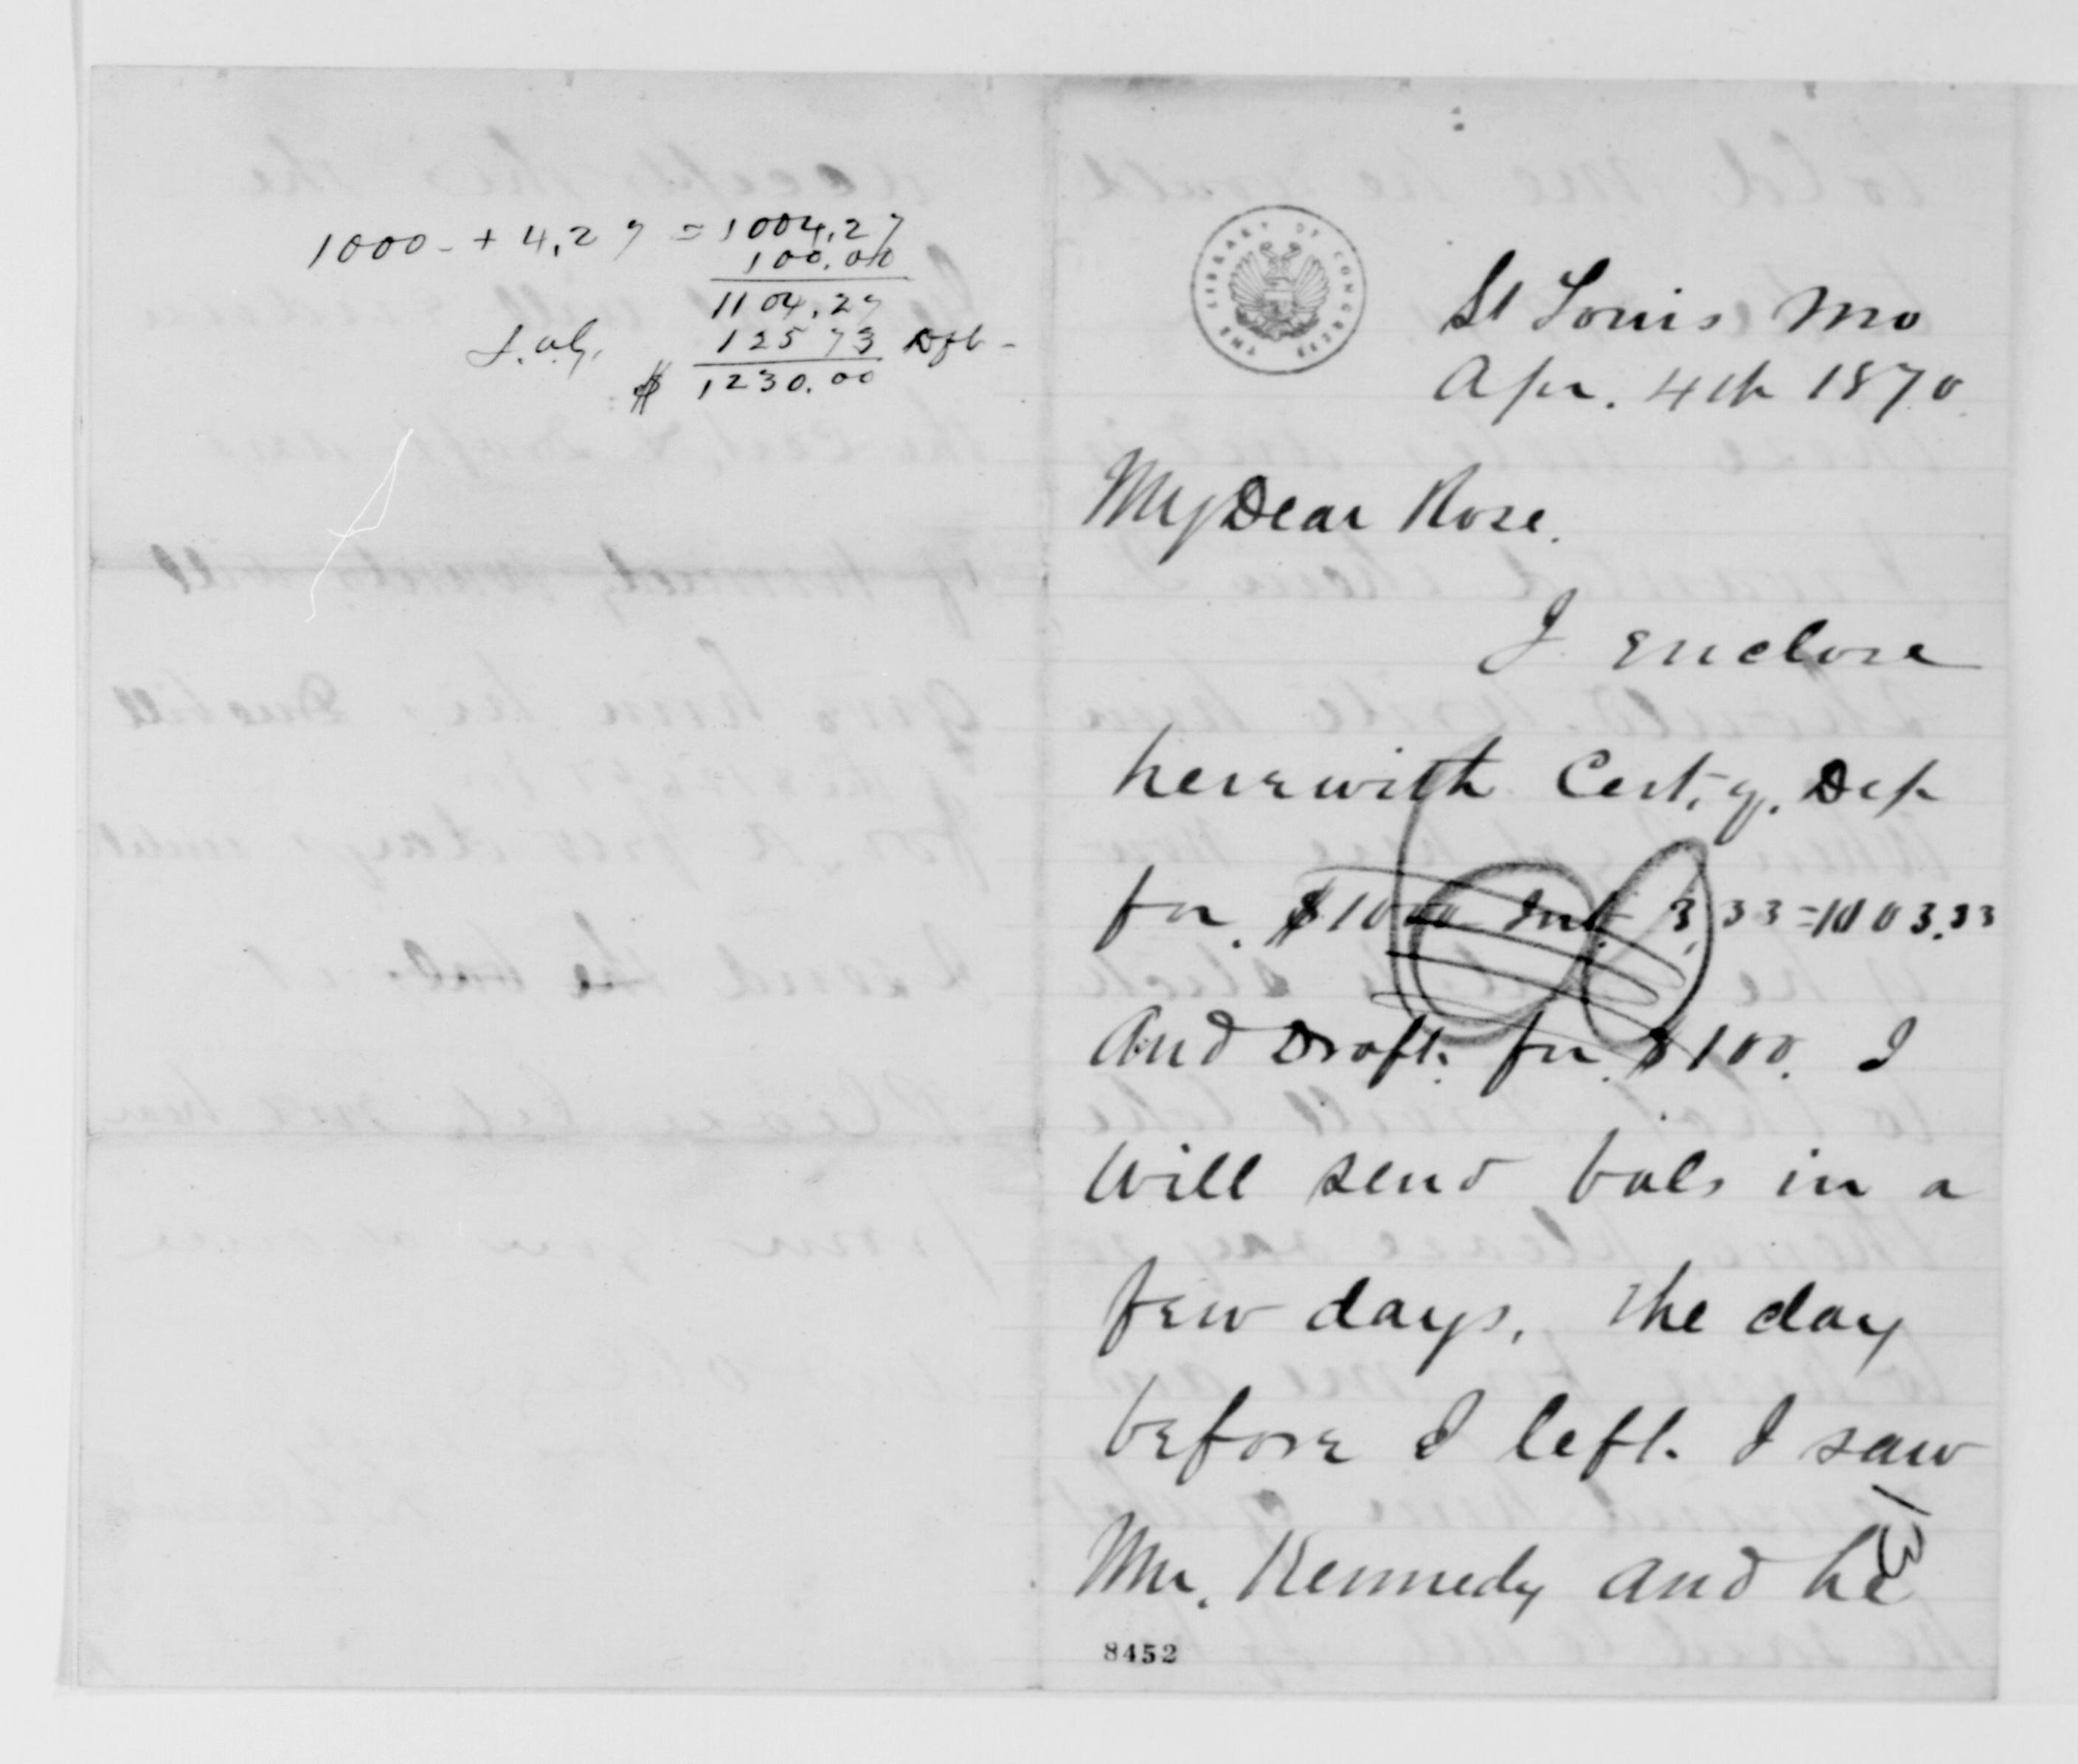 1000 - + 4,27 = 1004,27
100.00
1104,27
12573 Dft -
$ 1230.00
THE LIBRARY OF CONGRESS
St Louis Mo
Apr. 4th 1870
My Dear Rose.
I enclose
herewith Cert. of. Dep
for $1000 Int. 3,33 = 1003.33
And Draft. for $100. I
Will send bals in a
few days. The day
before I left. I saw
Mr. Kennedy and he
8452